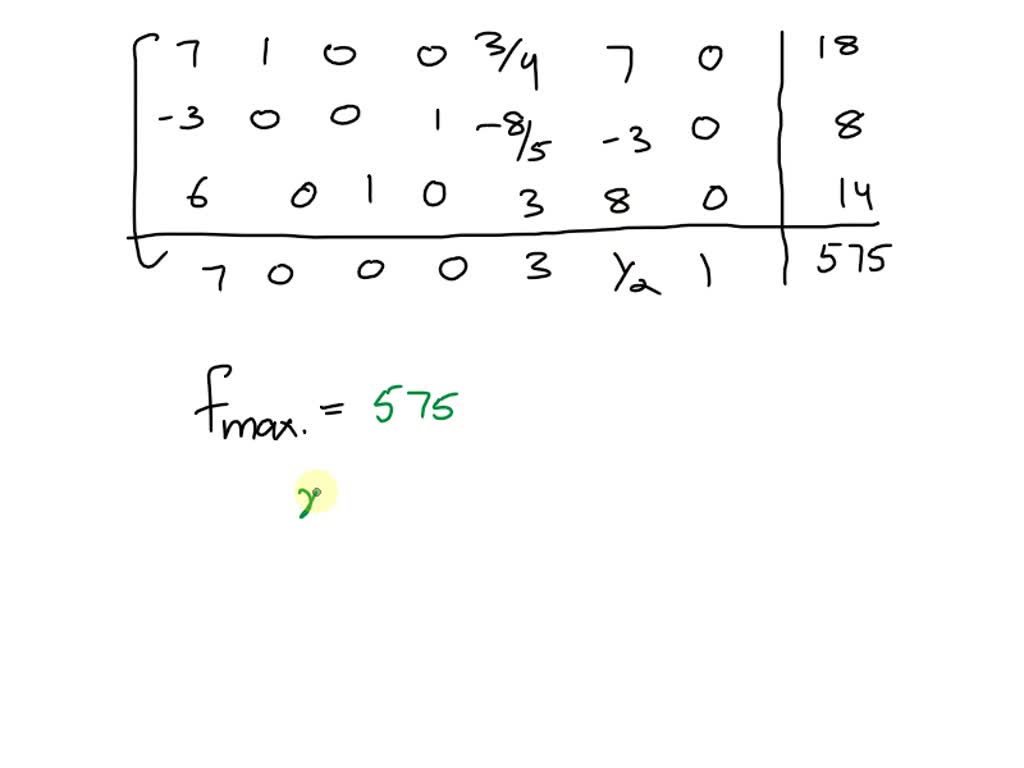 7 1 0 0 3/4 7 0 | 18
-3 0 0 1 -8/5 -3 0 | 8
6 0 1 0 3 8 0 | 14
7 0 0 0 3 1/2 1 | 575
fmax. = 575
x